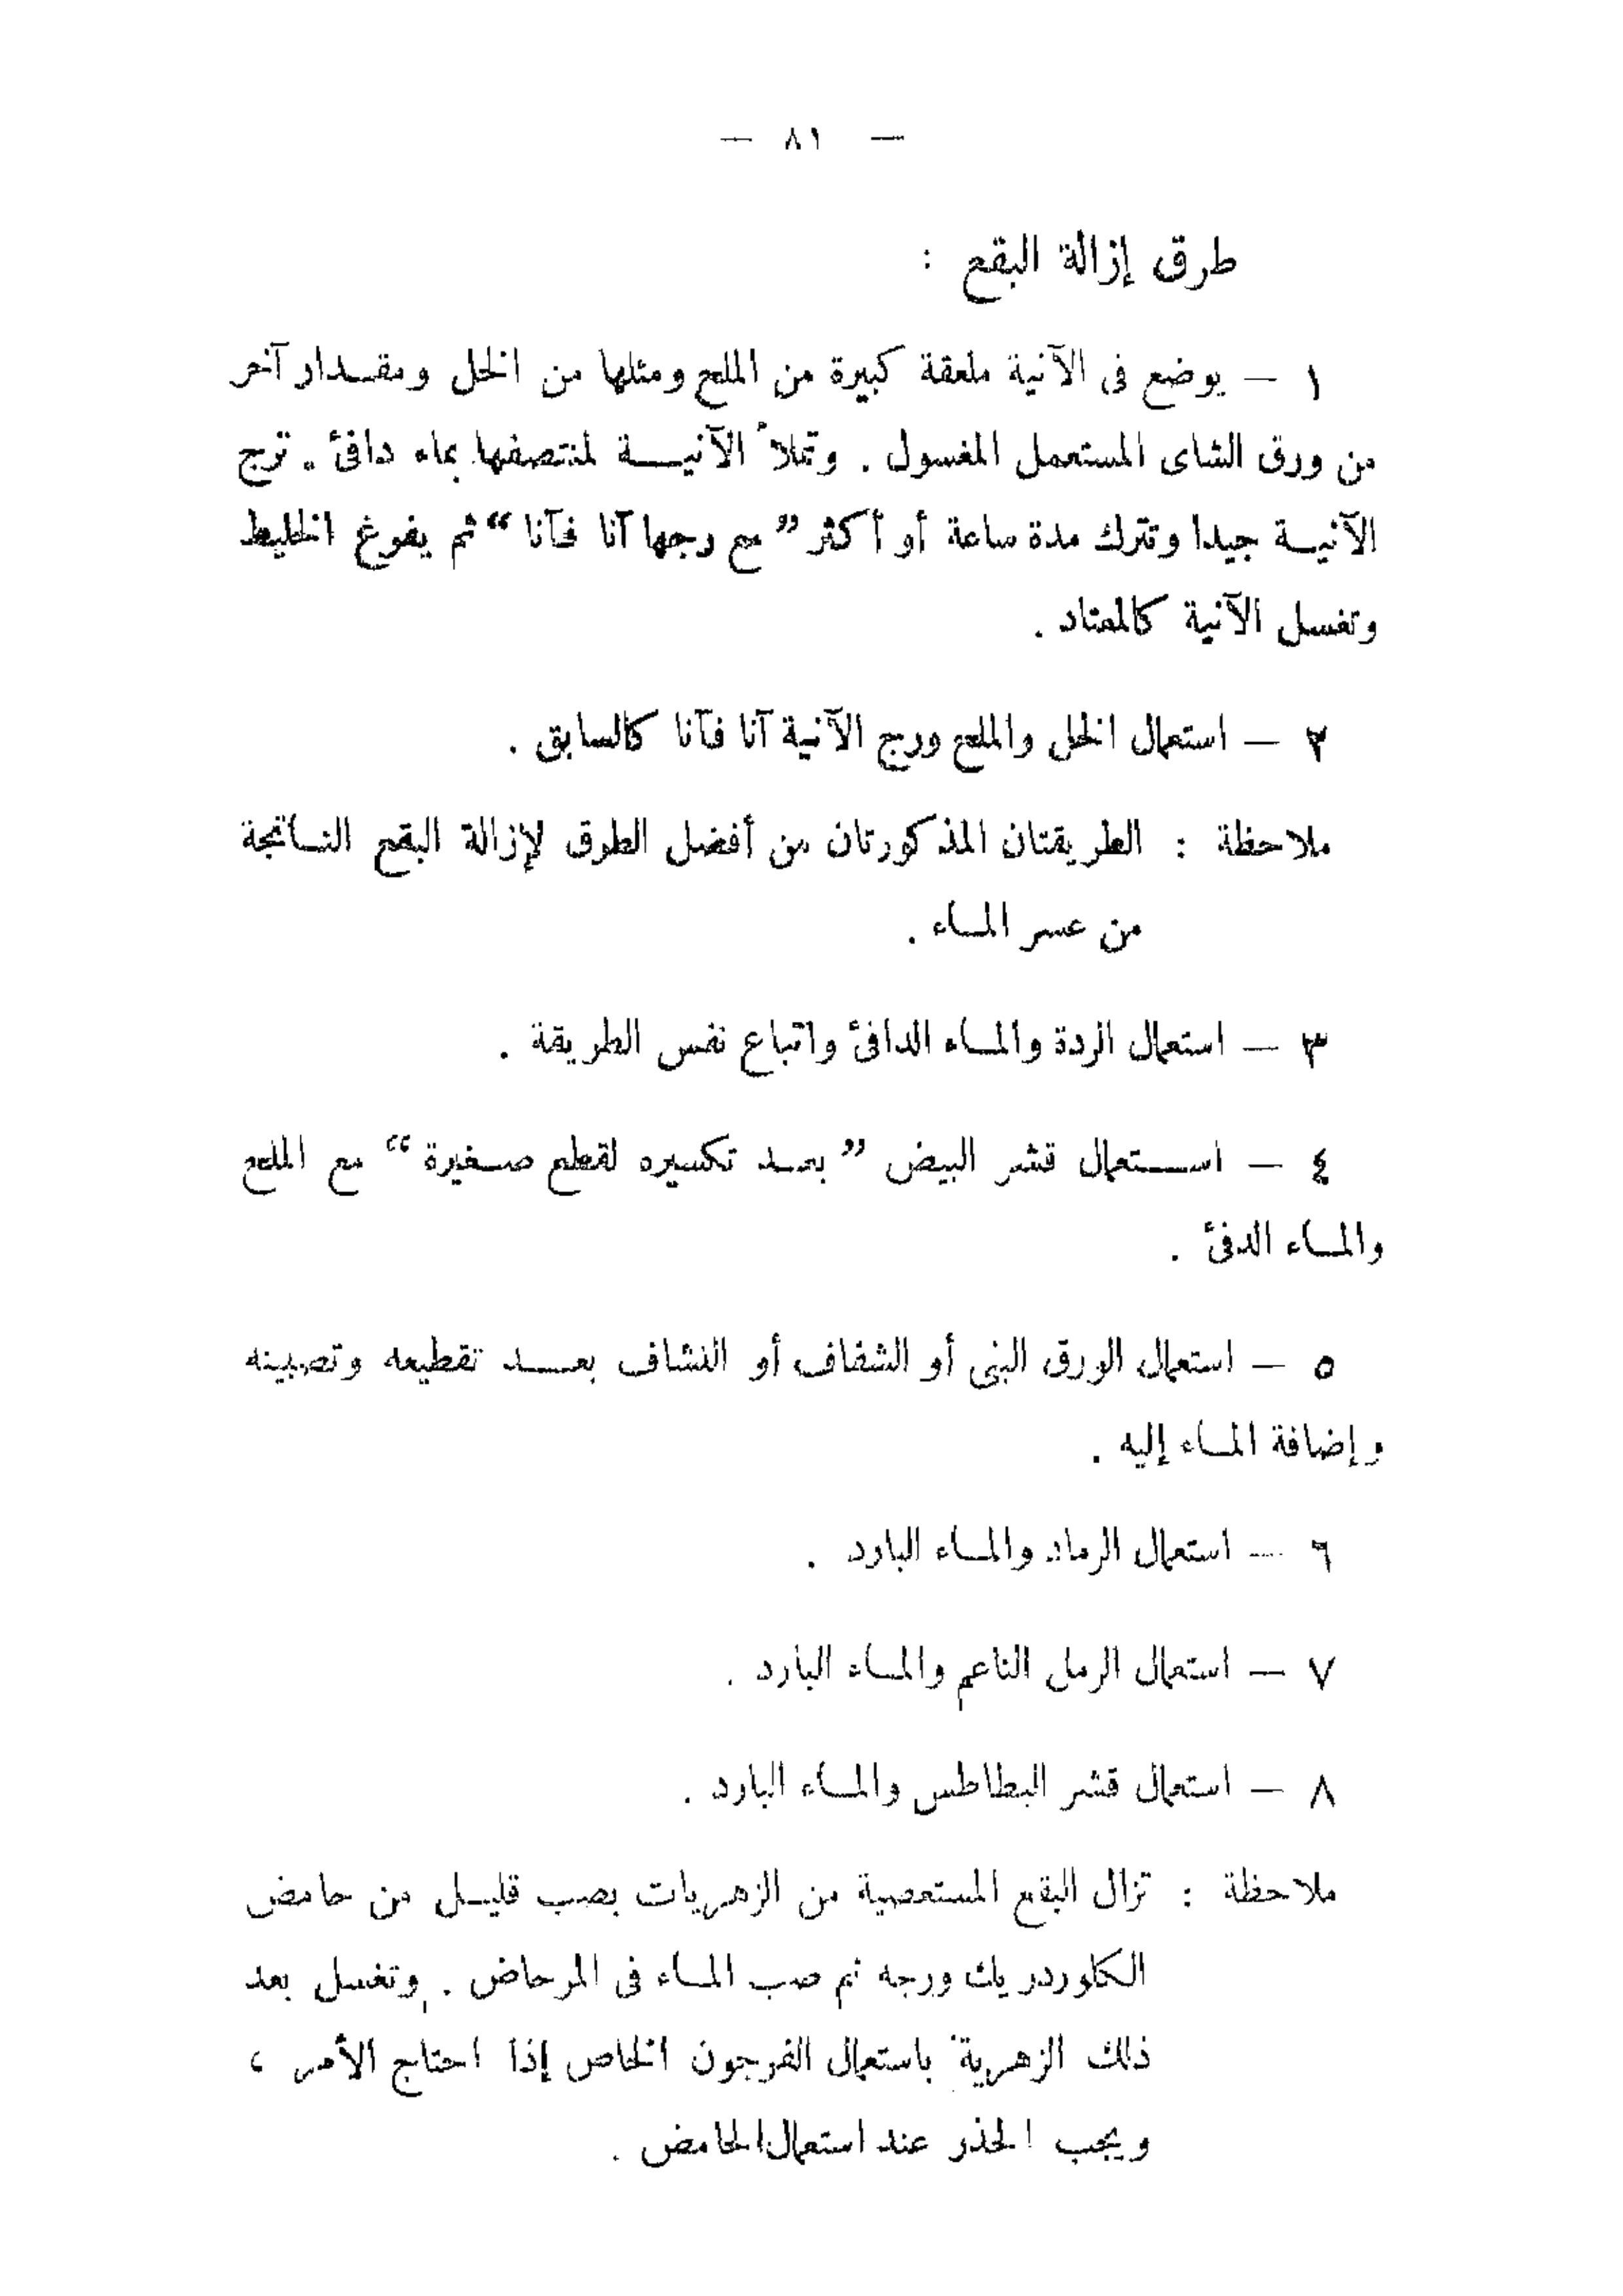 — ٨١ —
طرق إزالة البقع :
١ — يوضع فى الآنية ملعقة كبيرة من الملح ومثلها من الخل ومقدار آخر
من ورق الشاى المستعمل المغسول . وتملأ الآنية لمنتصفها بماء دافئ . ترج
الآنية جيدا وتترك مدة ساعة أو أكثر ” مع رجها آنا فآنا “ ثم يفرغ الخليط
وتغسل الآنية كالمعتاد .
٢ — استعمال الخل والملح ورج الآنية آنا فآنا كالسابق .
ملاحظة : الطريقتان المذكورتان من أفضل الطرق لإزالة البقع الناتجة
من عسر الماء .
٣ — استعمال الردة والماء الدافئ واتباع نفس الطريقة .
٤ — استعمال قشر البيض ” بعد تكسيره لقطع صغيرة “ مع الملح
والماء الدفئ .
٥ — استعمال الورق البنى أو الشفاف أو النشاف بعد تقطيعه وتصبينه
وإضافة الماء إليه .
٦ — استعمال الرماد والماء البارد .
٧ — استعمال الرمل الناعم والماء البارد .
٨ — استعمال قشر البطاطس والماء البارد .
ملاحظة : تزال البقع المستعصية من الزهريات بصب قليل من حامض
الكلوردريك ورجه ثم صب الماء فى المرحاض . وتغسل بعد
ذلك الزهرية باستعمال الفرجون الخاص إذا احتاج الأمر ،
ويجب الحذر عند استعمال الحامض .